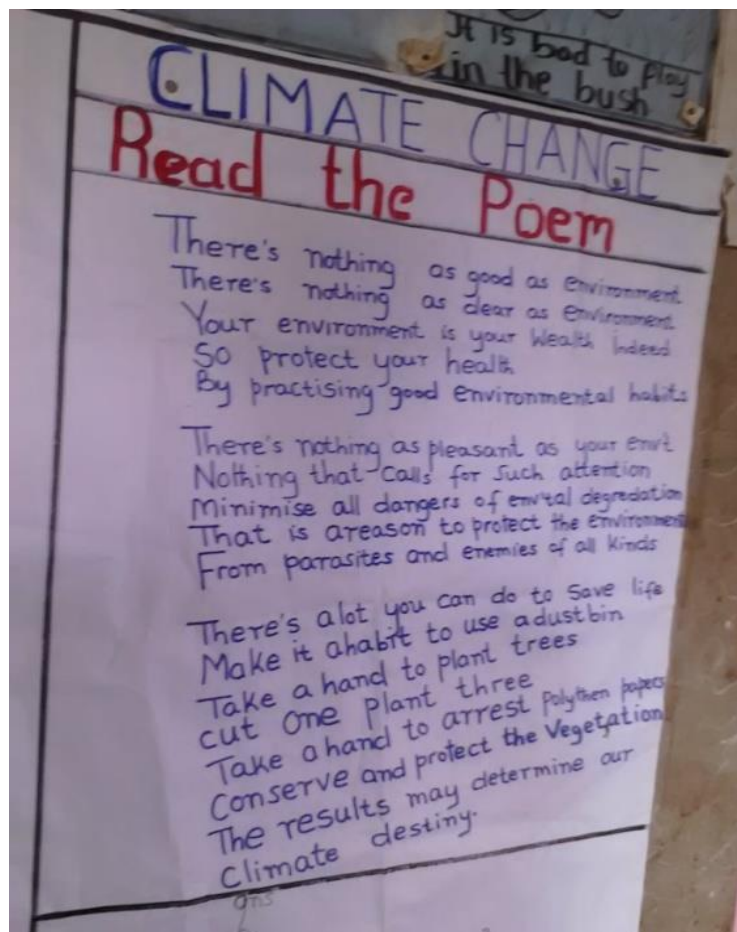 It is bad to play
in the bush
CLIMATE CHANGE
Read the Poem
There's nothing as good as environment
There's nothing as dear as environment
Your environment is your Wealth indeed
So protect your health
By practising good environmental habits
There's nothing as pleasant as your envt
Nothing that calls for such attention
Minimise all dangers of envtal degredation
That is areason to protect the environment
From parasites and enemies of all kinds
There's alot you can do to save life
Make it ahabit to use adustbin
Take a hand to plant trees
cut one plant three
Take a hand to arrest polythen papers
Conserve and protect the Vegetation
The results may determine our
Climate destiny.